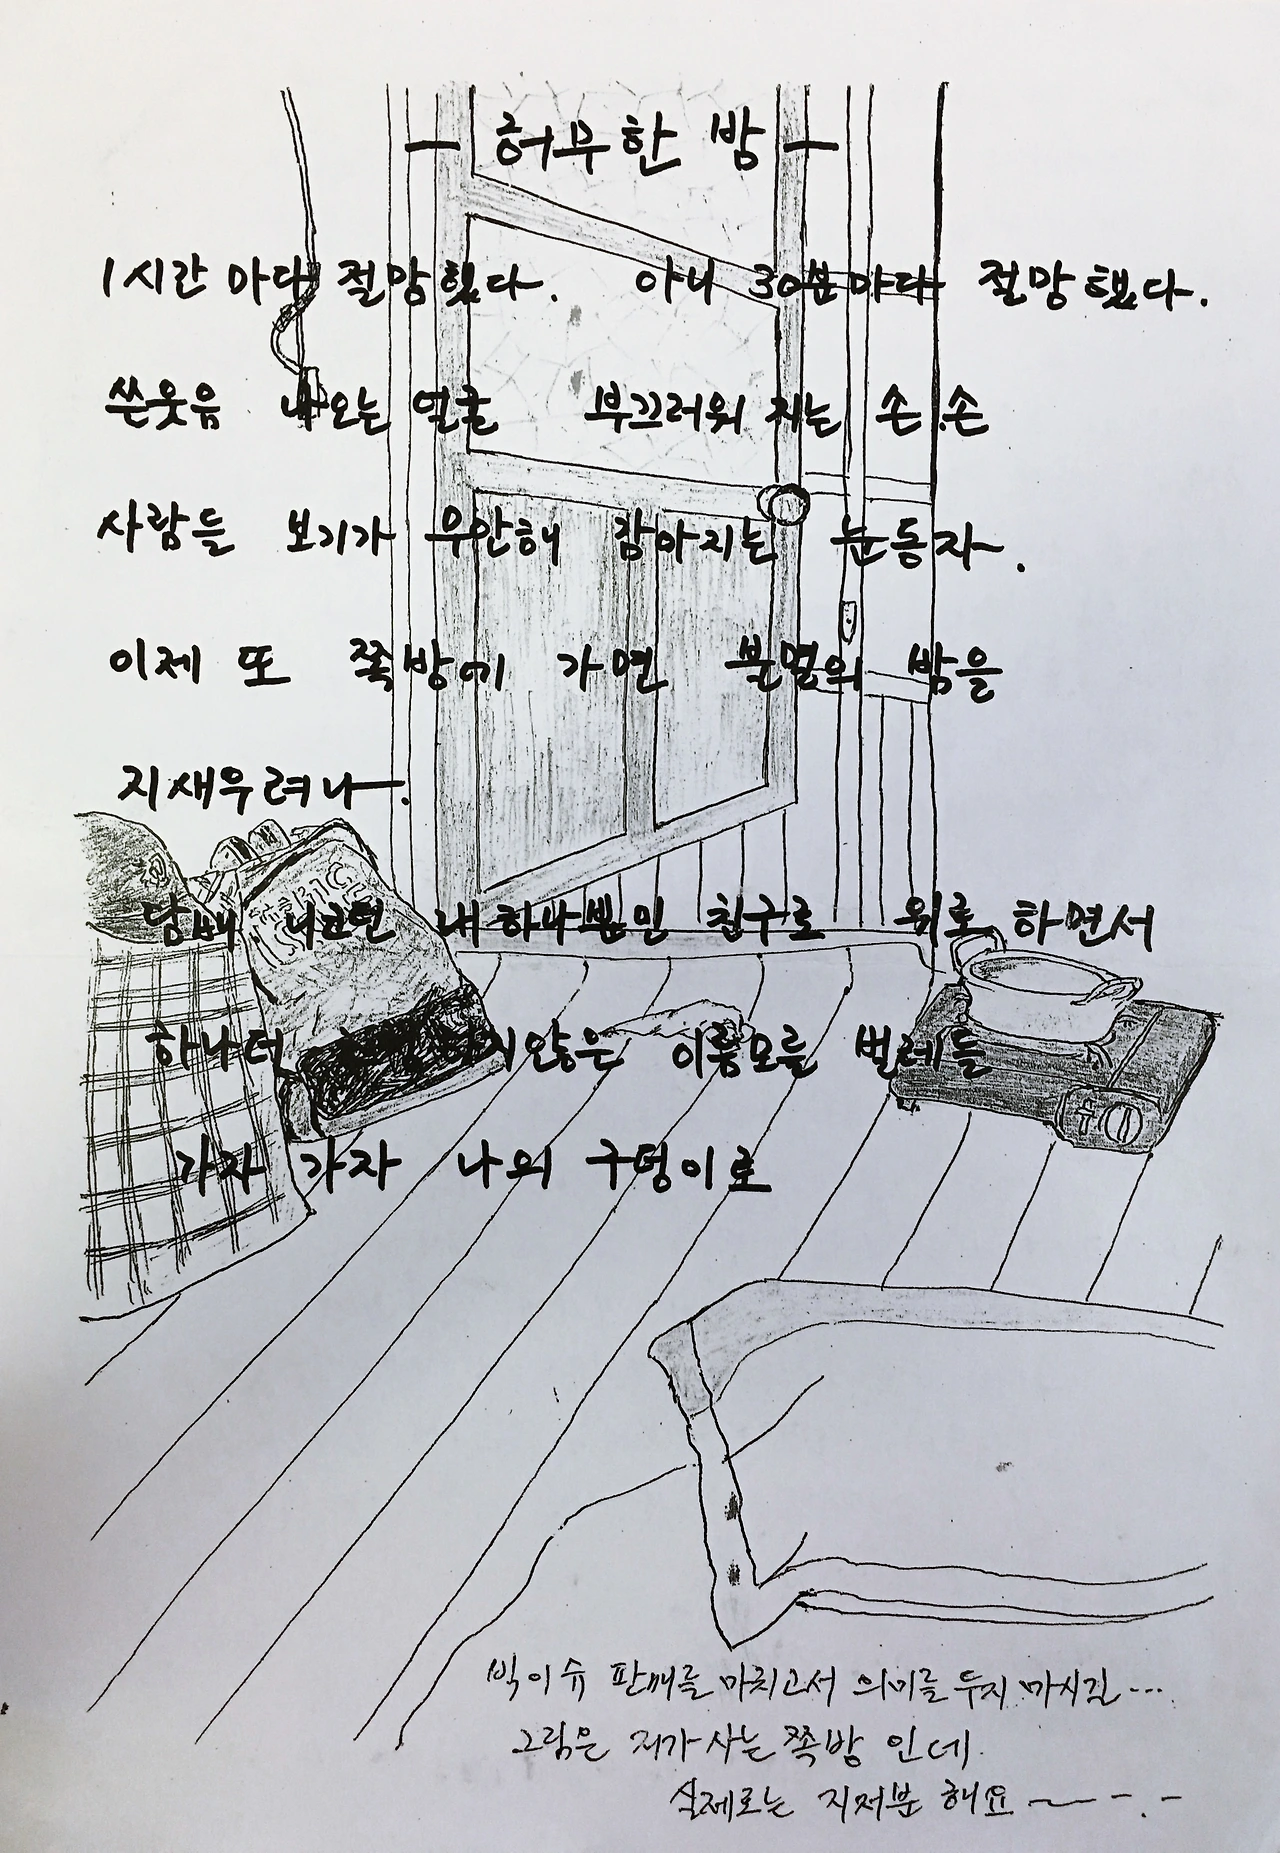 - 허무한 밤 -
1시간 마다 절망했다. 아니 30분마다 절망했다.
쓴웃음 나오는 얼굴 부끄러워 지는 손.손
사람들 보기가 무안해 감아지는 눈동자.
이제 또 쪽방에 가면 불면의 밤을
지새우려나.
담배 너란 내 하나뿐인 친구로 위로 하면서
하나더 하지않은 이름모를 벌레들
가자 가자 나의 구덩이로
빅이슈 판매를 마치고서 의미를 두지 마시길...
그림은 저가 사는 쪽방 인데
실제로는 지저분 해요